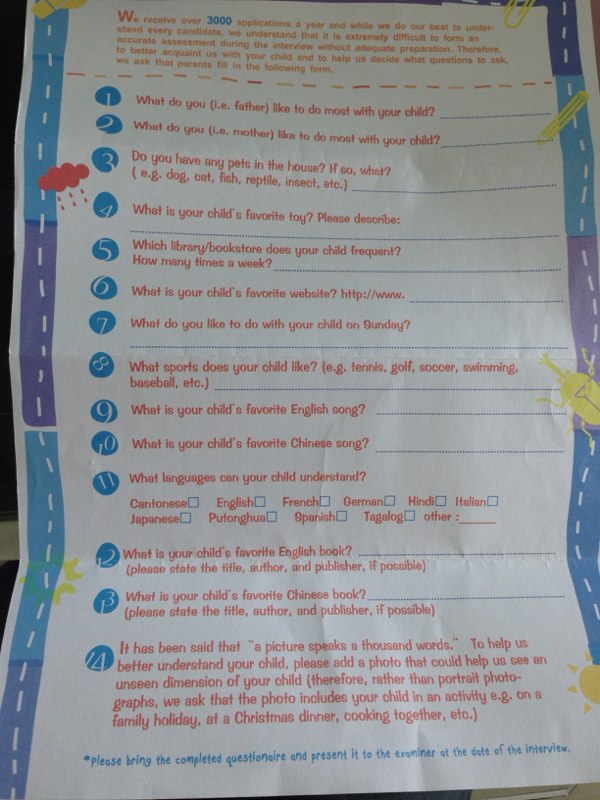 We receive over 3000 applications a year and while we do our best to under-
stand every candidate, we understand that it is extremely difficult to form an
accurate assessment during the interview without adequate preparation. Therefore,
to better acquaint us with your child and to help us decide what questions to ask,
we ask that parents fill in the following form.
1 What do you (i.e. father) like to do most with your child?
2 What do you (i.e. mother) like to do most with your child?
3 Do you have any pets in the house? If so, what?
( e.g. dog, cat, fish, reptile, insect, etc.)
4 What is your child's favorite toy? Please describe:
5 Which library/bookstore does your child frequent?
How many times a week?
6 What is your child's favorite website? http://www.
7 What do you like to do with your child on Sunday?
8 What sports does your child like? (e.g. tennis, golf, soccer, swimming,
baseball, etc.)
9 What is your child's favorite English song?
10 What is your child's favorite Chinese song?
11 What languages can your child understand?
Cantonese□ English□ French□ German□ Hindi□ Italian□
Japanese□ Putonghua□ Spanish□ Tagalog□ other :______
12 What is your child's favorite English book?
(please state the title, author, and publisher, if possible)
13 What is your child's favorite Chinese book?
(please state the title, author, and publisher, if possible)
14 It has been said that "a picture speaks a thousand words." To help us
better understand your child, please add a photo that could help us see an
unseen dimension of your child (therefore, rather than portrait photo-
graphs, we ask that the photo includes your child in an activity e.g. on a
family holiday, at a Christmas dinner, cooking together, etc.)
*Please bring the completed questionaire and present it to the examiner at the date of the interview.